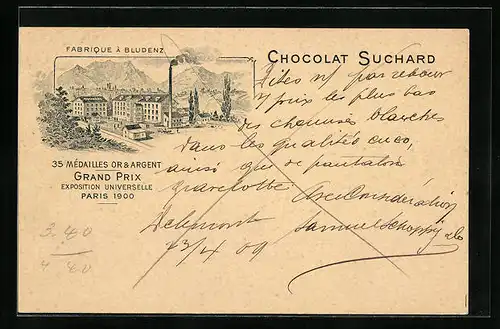 FABRIQUE À BLUDENZ
CHOCOLAT SUCHARD
35 MÉDAILLES OR & ARGENT
GRAND PRIX
EXPOSITION UNIVERSELLE
PARIS 1900
Dites n/ par retour
v/ prix les plus bas
des chemises blanches
dans les qualités
ainsi que de pantalons
Avec Considération
Delémont
23/4 09
Samuel
3.80
4 80